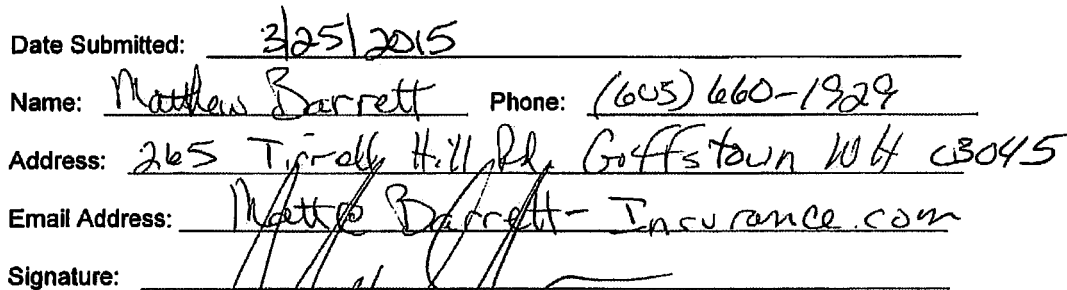 Date Submitted: 3/25/2015
Name: Matthew Barrett Phone: (603) 660-1929
Address: 265 Tirrell Hill Rd. Goffstown NH 03045
Email Address: Matt@Barrett-Insurance.com
Signature: